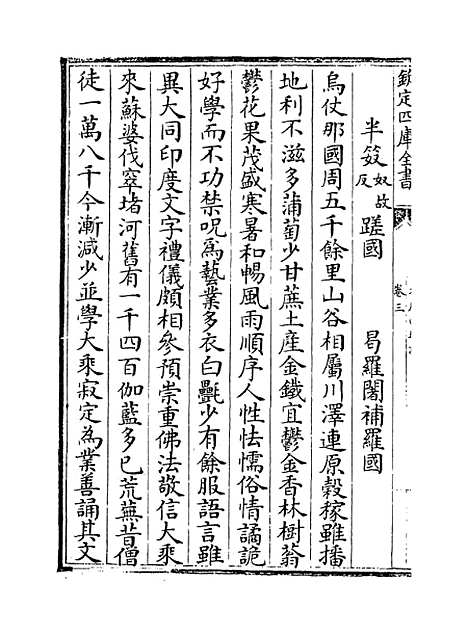 欽定四庫全書
卷三
半笯奴故反蹉國　曷羅闍補羅國
烏仗那國周五千餘里山谷相屬川澤連原穀稼雖播
地利不滋多蒲萄少甘蔗土產金鐵宜鬱金香林樹蓊
鬱花果茂盛寒暑和暢風雨順序人性怯懦俗情譎詭
好學而不功禁呪為藝業多衣白㲲少有餘服語言雖
異大同印度文字禮儀頗相參預崇重佛法敬信大乘
來蘇婆伐窣堵河舊有一千四百伽藍多已荒蕪昔僧
徒一萬八千今漸減少並學大乘寂定為業善誦其文